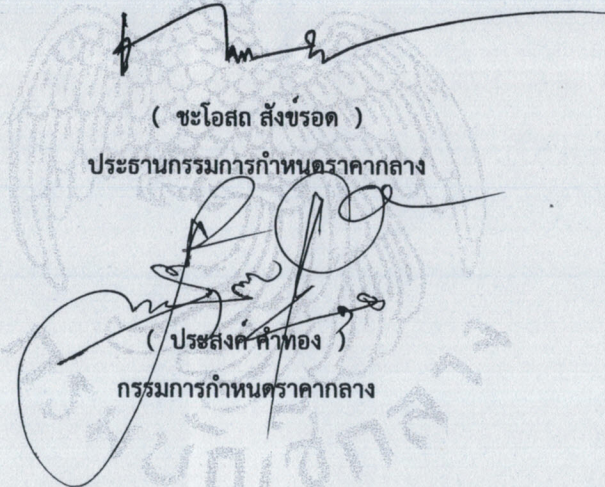 ( ชะโอสถ สังข์รอด )
ประธานกรรมการกำหนดราคากลาง
( ประสงค์ คำทอง )
กรรมการกำหนดราคากลาง
กรมบัญชีกลาง